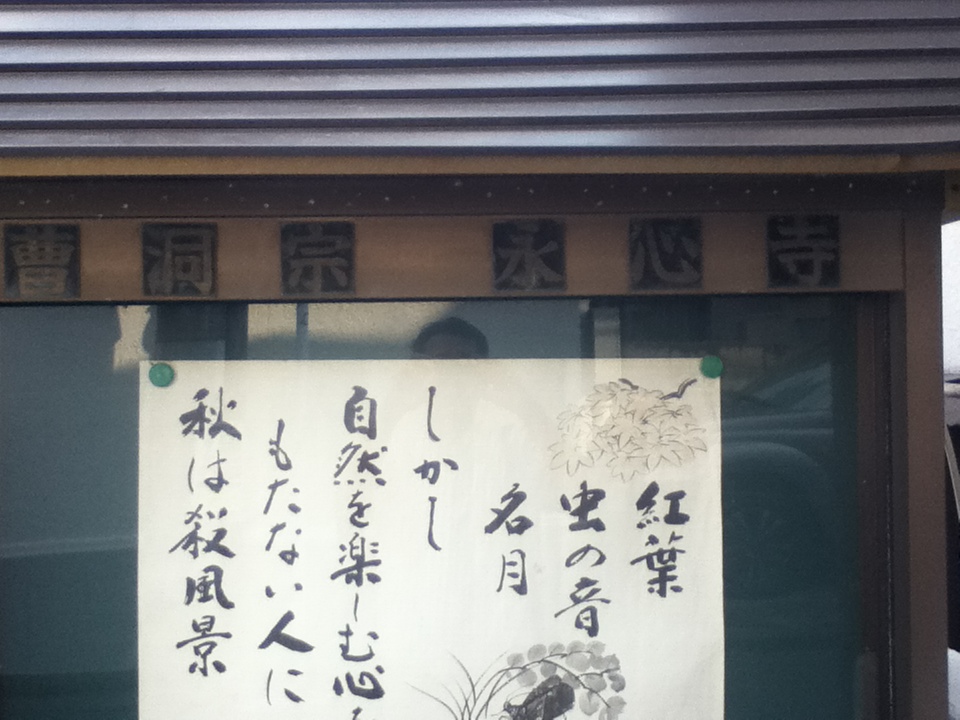 曹洞宗 永心寺
紅葉
虫の音
名月
しかし
自然を楽しむ心
もたない人に
秋は殺風景